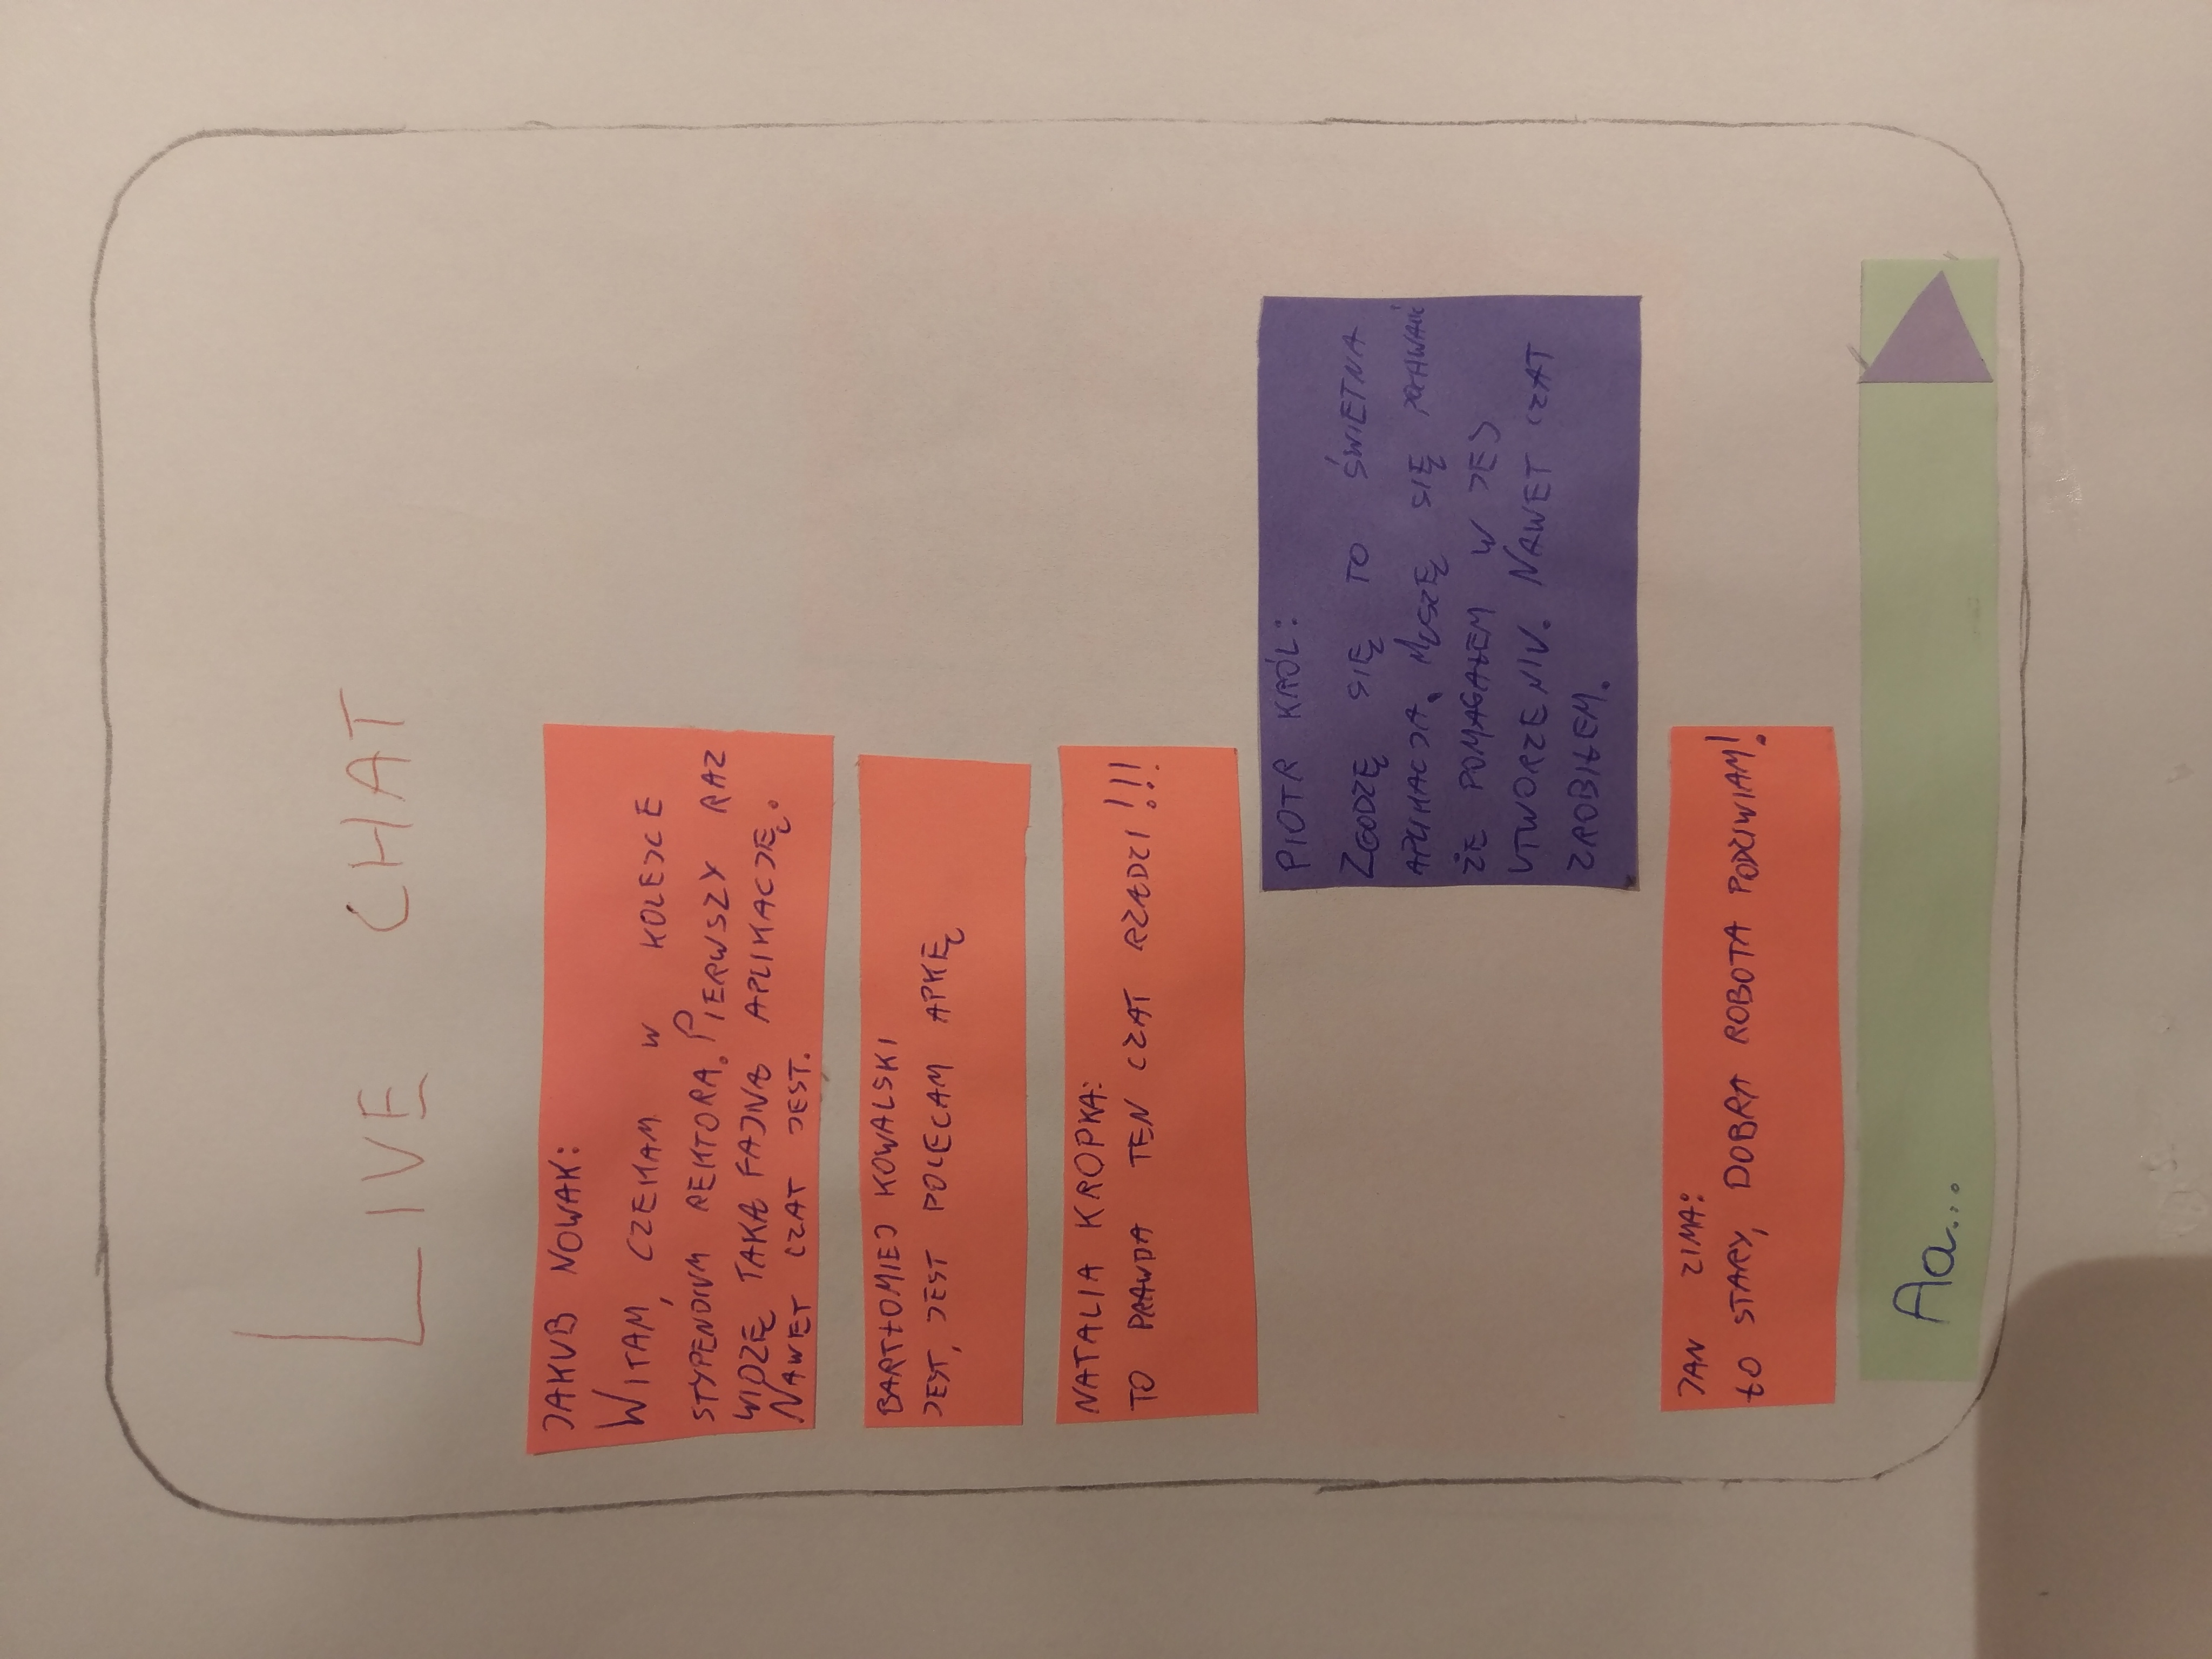 LIVE CHAT
JAKUB NOWAK:
WITAM, CZEKAM W KOLEJCE
STYPENDIUM REKTORA. PIERWSZY RAZ
WIDZĘ TAKĄ FAJNĄ APLIKACJĘ.
NAWET CZAT JEST.
BARTŁOMIEJ KOWALSKI
JEST, JEST POLECAM APKĘ
NATALIA KROPKA:
TO PRAWDA TEN CZAT RZĄDZI!!!
PIOTR KRÓL:
ZGODZĘ SIĘ TO ŚWIETNA
APLIKACJA. MUSZĘ SIĘ POHWALIĆ
ŻE POMAGAŁEM W JEJ
UTWORZENIU. NAWET CZAT
ZROBIŁEM.
JAN ZIMA:
ŁO STARY, DOBRA ROBOTA PODZIWIAM!
Aa...